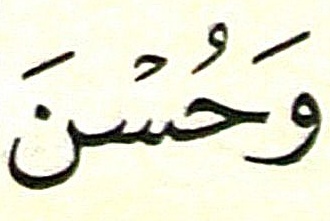 وَحُسْنَ